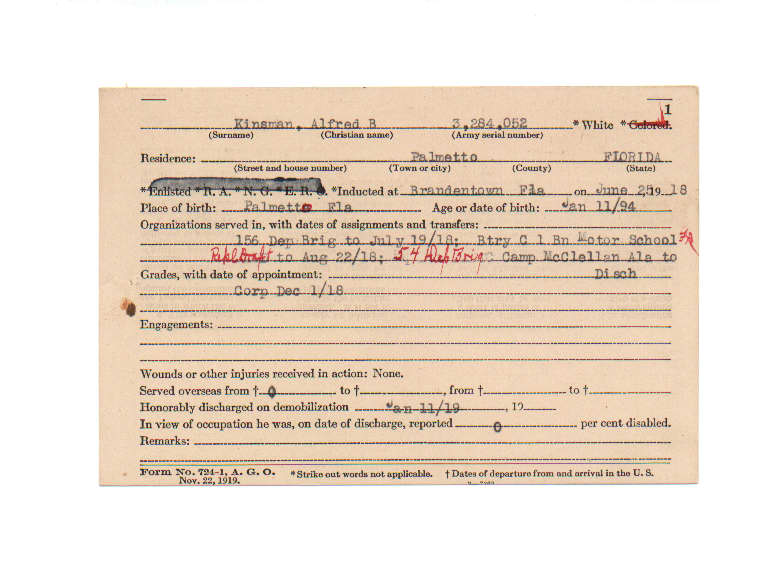 1
Kinsman, Alfred B 3,284,052 * White * Colored.
(Surname) (Christian name) (Army serial number)
Residence: Palmetto FLORIDA
(Street and house number) (Town or city) (County) (State)
* Enlisted * R. A. * N. G. * E. R. C. *Inducted at Brandentown Fla on June 25 19 18
Place of birth: Palmetto Fla Age or date of birth: Jan 11/94
Organizations served in, with dates of assignments and transfers:
156 Dep Brig to July 19/18; Btry C 1 Bn Motor School FA
Repl Draft to Aug 22/18; 54 Dep Brig Camp McClellan Ala to
Grades, with date of appointment: Disch
Corp Dec 1/18
Engagements:
Wounds or other injuries received in action: None.
Served overseas from † 0 to †, from † to †
Honorably discharged on demobilization Jan 11/19, 19
In view of occupation he was, on date of discharge, reported 0 per cent disabled.
Remarks:
Form No. 724-1, A. G. O. *Strike out words not applicable. † Dates of departure from and arrival in the U. S.
Nov. 22, 1919.